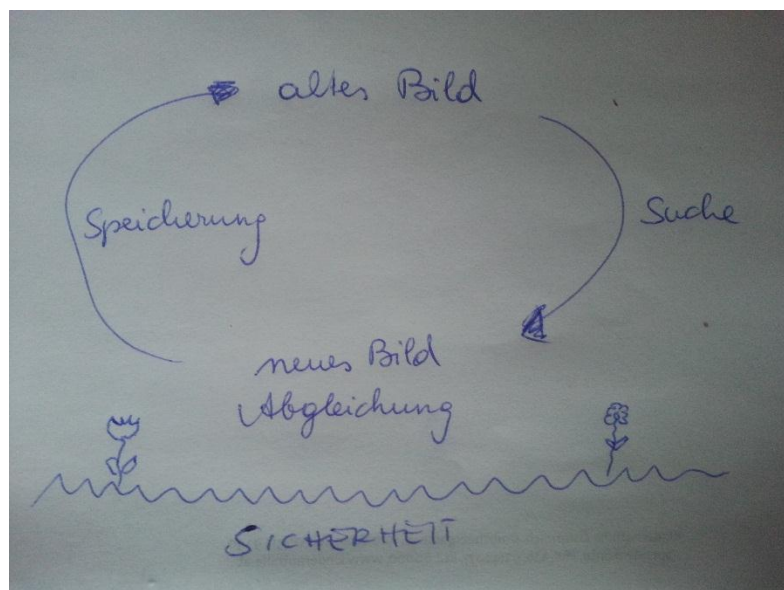 altes Bild
Speicherung
Suche
neues Bild
Abgleichung
SICHERHEIT